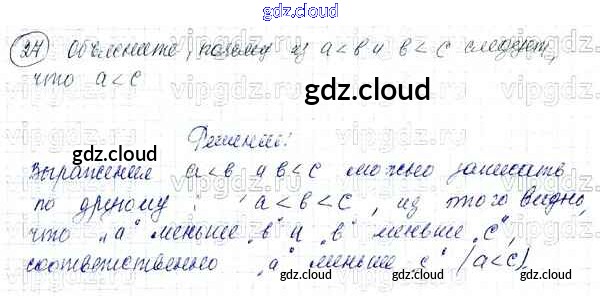 gdz.cloud
27 Объясните, почему из a < b и b < c следует,
что a < c
gdz.cloud
Решение:
gdz.cloud
Выражения a < b и b < c можно записать
по другому : a < b < c , из этого видно,
что „a" меньше „b" и „b" меньше „c",
соответственно „a" меньше „c" (a < c).
gdz.cloud
gdz.cloud